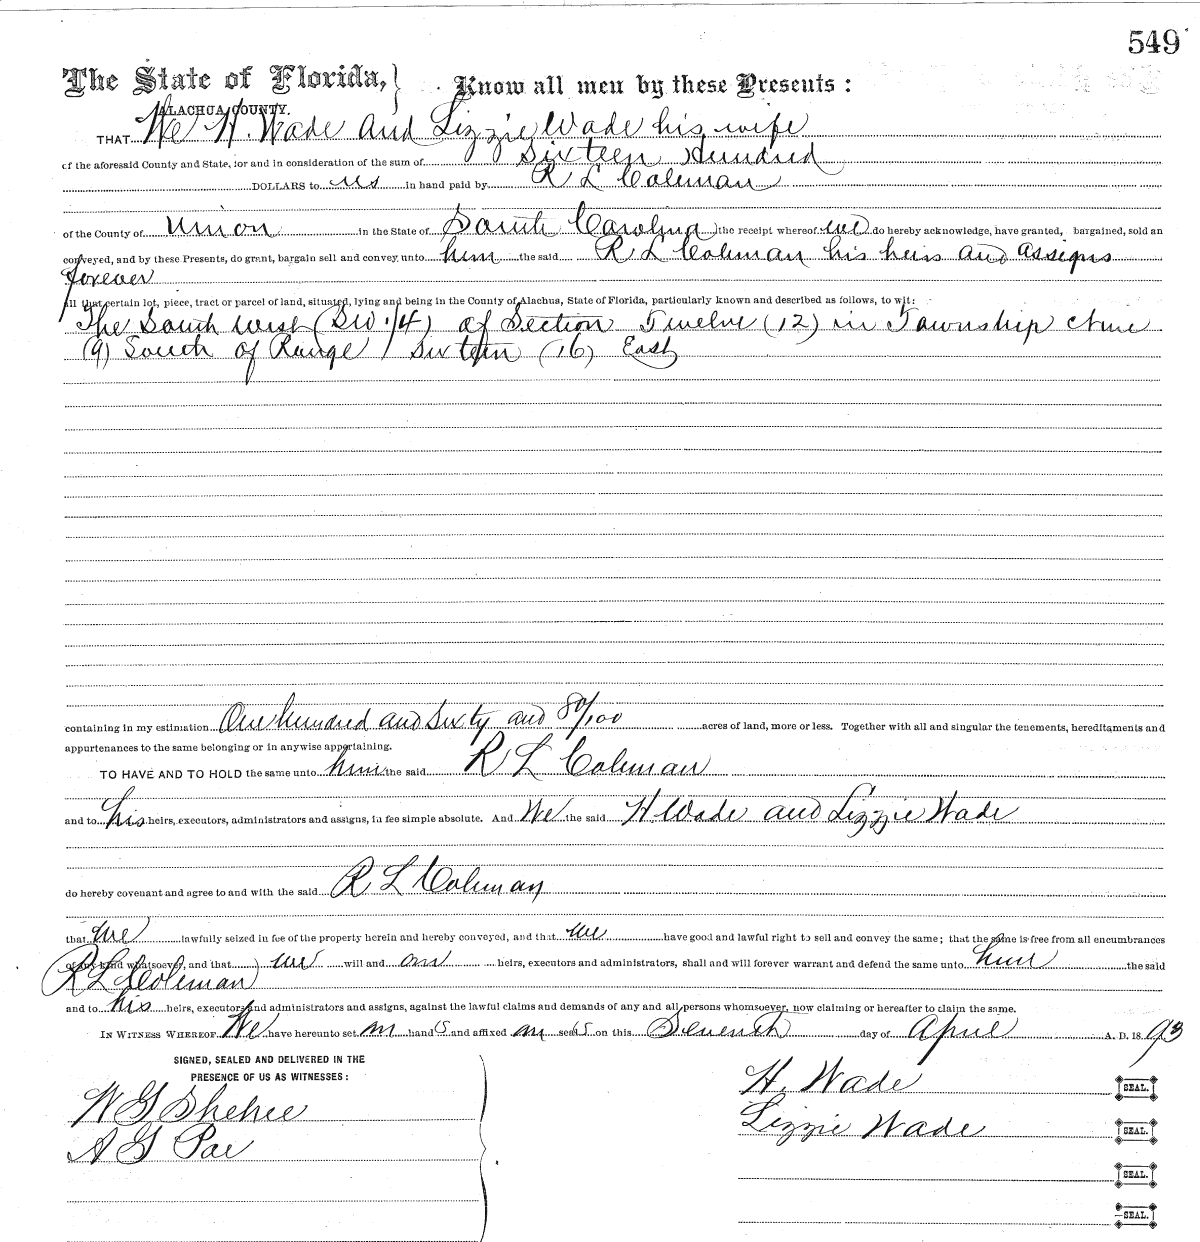 549
The State of Florida,} Know all men by these Presents:
ALACHUA COUNTY.
THAT We H. Wade and Lizzie Wade his wife
of the aforesaid County and State, for and in consideration of the sum of Sixteen Hundred
DOLLARS to us in hand paid by R L Coleman
of the County of Union in the State of South Carolina the receipt whereof we do hereby acknowledge, have granted, bargained, sold an
conveyed, and by these Presents, do grant, bargain sell and convey unto him the said R L Coleman his heirs and assigns
forever
all that certain lot, piece, tract or parcel of land, situated, lying and being in the County of Alachua, State of Florida, particularly known and described as follows, to wit:
The South West (SW 1/4) of Section Twelve (12) in Township Nine
(9) South of Range Sixteen (16) East
containing in my estimation One hundred and Sixty and 80/100 acres of land, more or less. Together with all and singular the tenements, hereditaments and
appurtenances to the same belonging or in anywise appertaining.
TO HAVE AND TO HOLD the same unto him the said R L Coleman
and to his heirs, executors, administrators and assigns, in fee simple absolute. And We the said H. Wade and Lizzie Wade
do hereby covenant and agree to and with the said R L Coleman
that we lawfully seized in fee of the property herein and hereby conveyed, and that we have good and lawful right to sell and convey the same; that the same is free from all encumbrances
of any kind whatsoever, and that we will and our heirs, executors and administrators, shall and will forever warrant and defend the same unto him the said
R L Coleman
and to his heirs, executors and administrators and assigns, against the lawful claims and demands of any and all persons whomsoever, now claiming or hereafter to claim the same.
IN WITNESS WHEREOF We have hereunto set our hands and affixed our seals on this Seventh day of April A. D. 1893
SIGNED, SEALED AND DELIVERED IN THE
PRESENCE OF US AS WITNESSES:
H. Wade SEAL.
W G Shehee
Lizzie Wade SEAL.
A G Pae
SEAL.
SEAL.